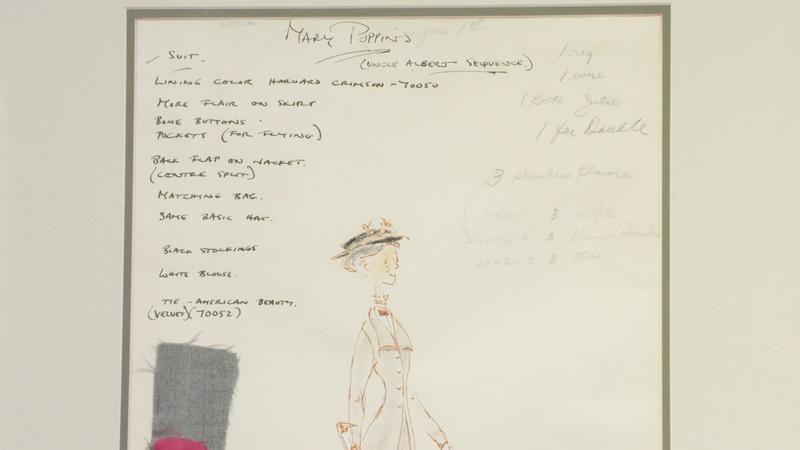 Mary Poppins
Suit.
(Uncle Albert Sequence.)
Lining color Harvard Crimson - 70050
More flair on skirt
Bone buttons.
Pockets (for flying)
Back flap on jacket.
(centre split)
Matching bag.
Same basic hat.
Black stockings
White blouse.
Tie - American Beauty.
(velvet) (70052)
1 reg
1 wire
(Both Julie
1 for Double
3
1042-1 3
1042-2 3
1042-3 3 ties